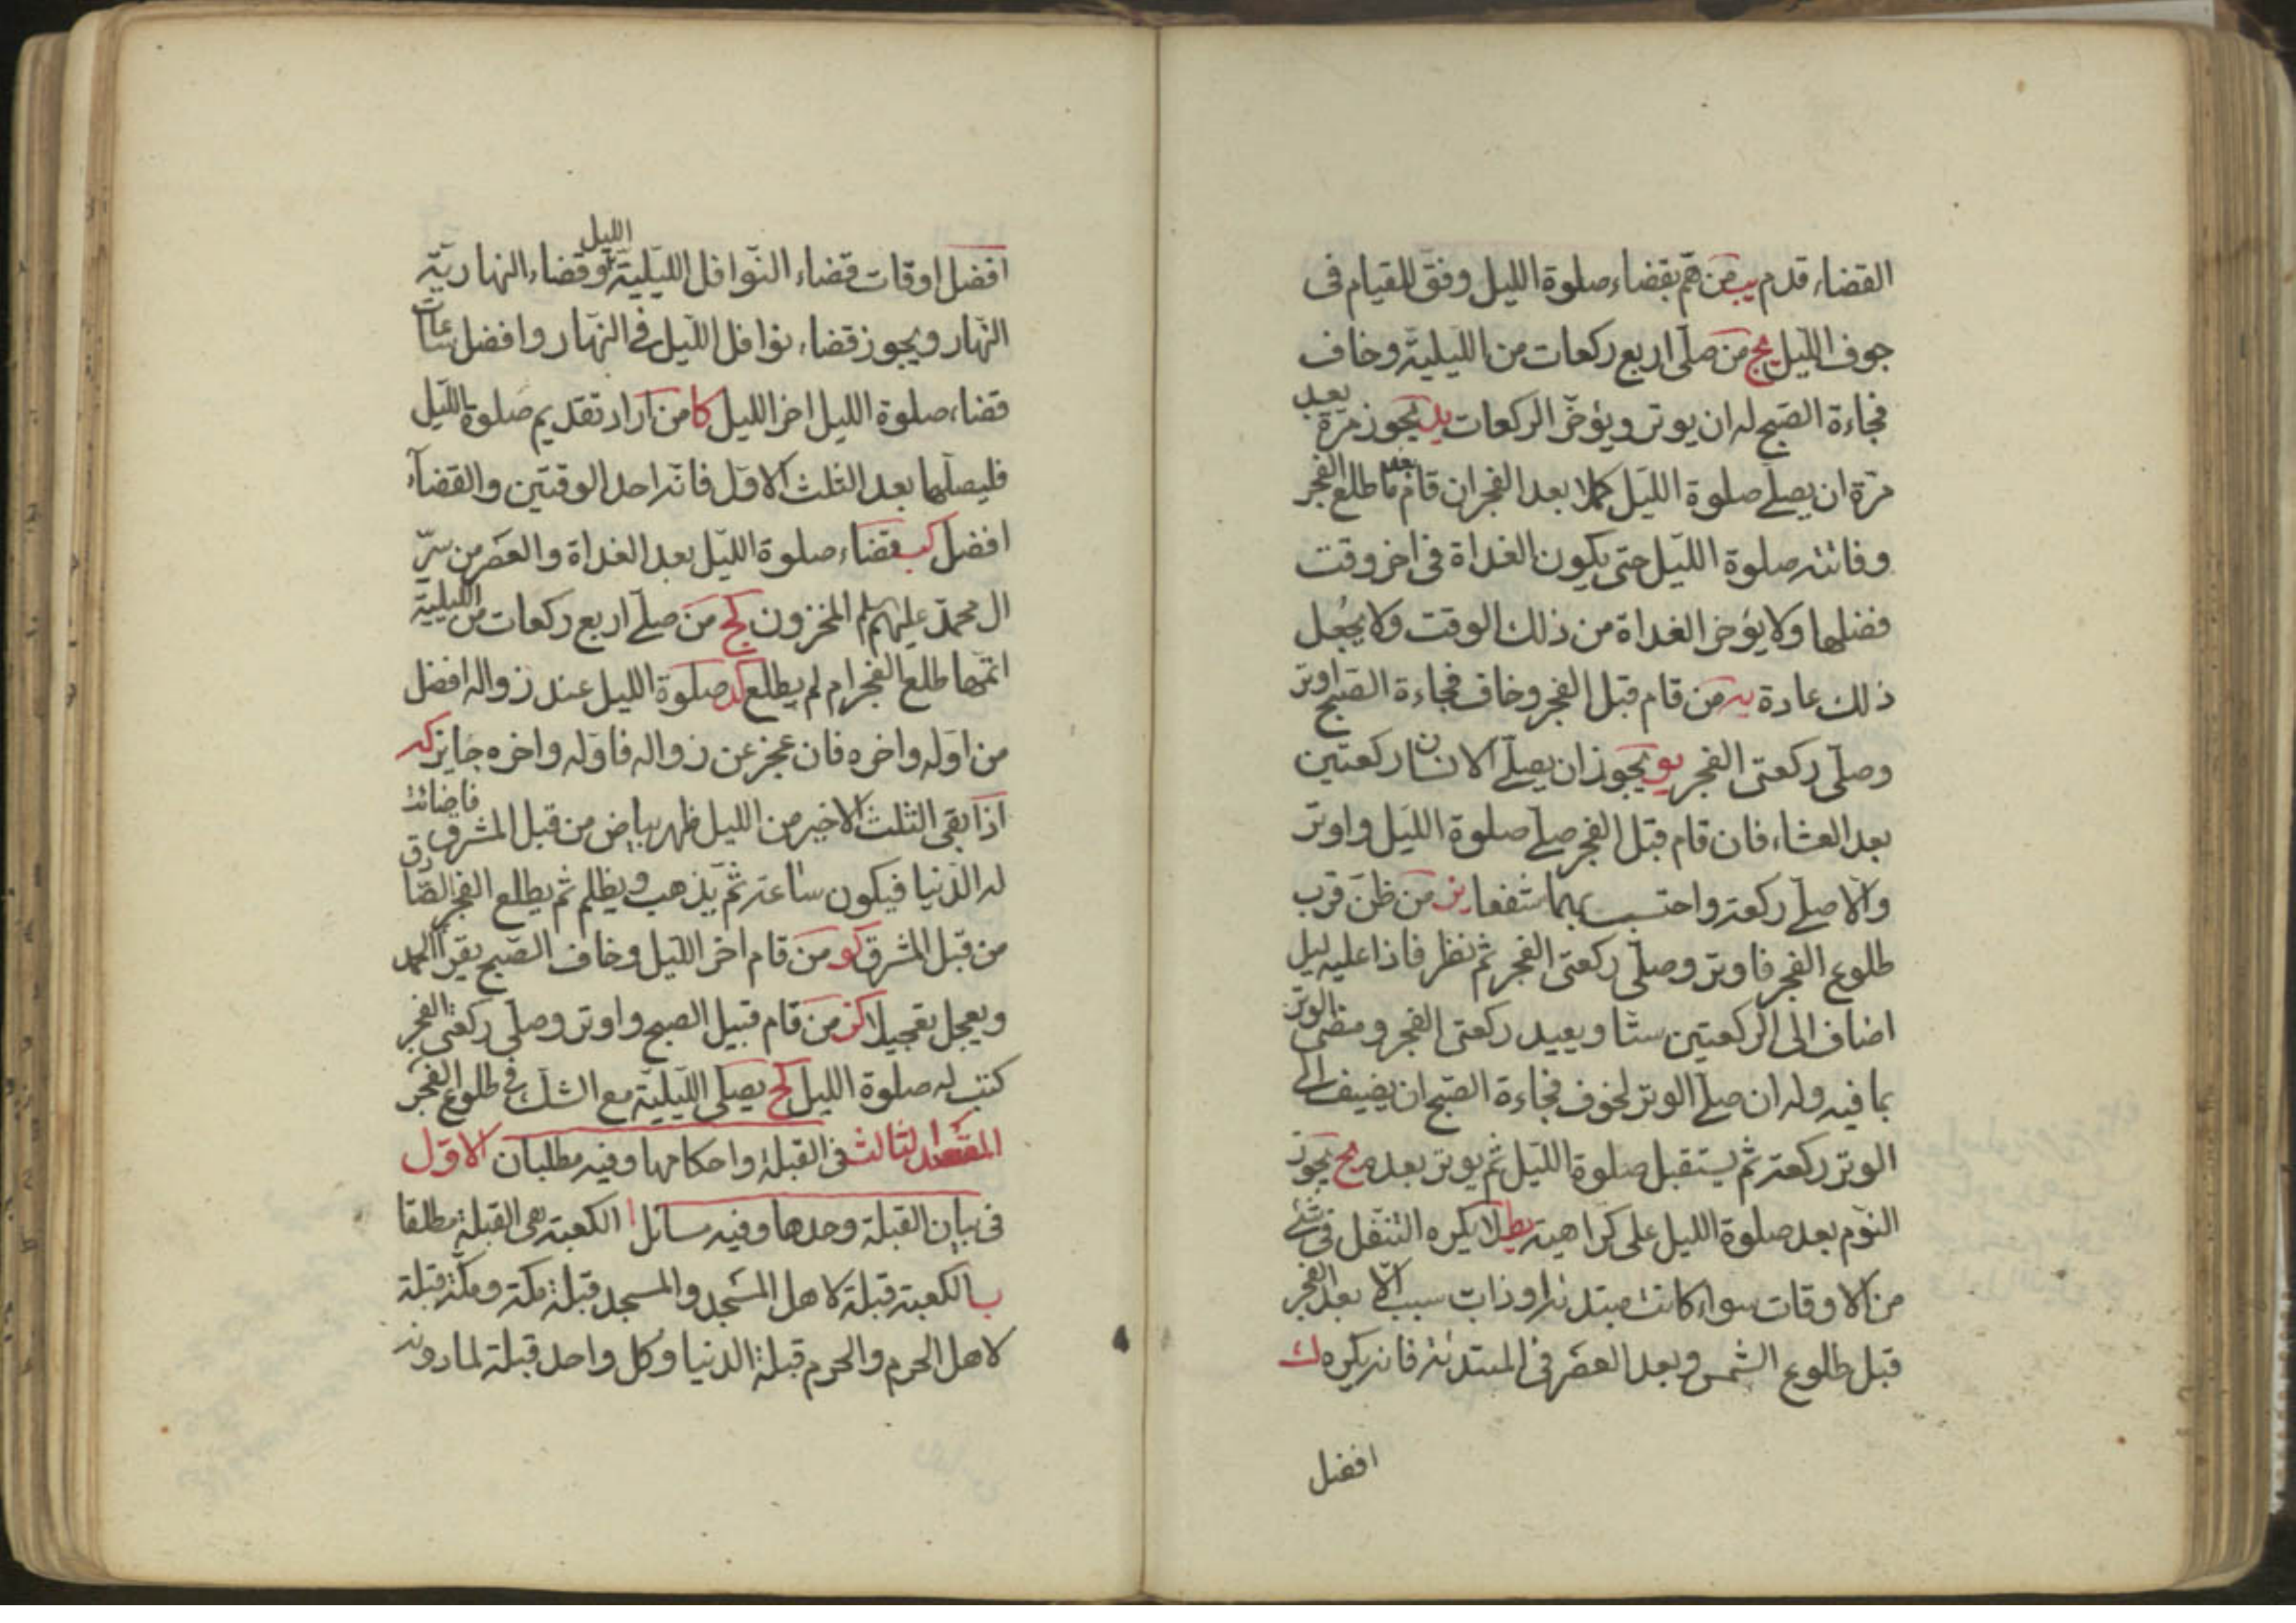 القضاء قدم يب من هم بقضاء صلوة الليل وفق للقيام فى
جوف الليل يج من صلى اربع ركعات من الليلية وخاف
فجاءة الصبح له ان يوتر ويؤخر الركعات يد يجوز مرة بعد
مرة ان يصلى صلوة الليل كملا بعد الفجر ان قام بعد ما طلع الفجر
وفاتته صلوة الليل حتى يكون الغداة فى اخر وقت
فضلها ولا يؤخر الغداة من ذلك الوقت ولا يجعل
ذلك عادة يه من قام قبل الفجر وخاف فجاءة الصبح اوتر
وصلى ركعتى الفجر يو يجوز ان يصلى الانسان ركعتين
بعد العشاء فان قام قبل الفجر صلى صلوة الليل واوتر
والا صلى ركعة واحتسب بهما شفعا يز من ظن قرب
طلوع الفجر فاوتر وصلى ركعتى الفجر ثم نظر فاذا عليه ليل
اضاف الى الركعتين ستا ويعيد ركعتى الفجر ومضى الوتر
بما فيه وله ان صلى الوتر لخوف فجاءة الصبح ان يضيف الى
الوتر ركعة ثم يستقبل صلوة الليل ثم يوتر بعده يح يجوز
النوم بعد صلوة الليل على كراهية يط لا يكره التنفل فى شئ
من الاوقات سواء كانت مبتدئة او ذات سبب الا بعد الفجر
قبل طلوع الشمس وبعد العصر فى المبتدئة فانه يكره ك
افضل
افضل اوقات قضاء النوافل الليلية الليل وقضاء النهارية
النهار ويجوز قضاء نوافل الليل فى النهار وافضل ساعات
قضاء صلوة الليل اخر الليل كا من اراد تقديم صلوة الليل
فليصلها بعد الثلث الاول فانه احد الوقتين والقضاء
افضل كب قضاء صلوة الليل بعد الغداة والعصر من سر
ال محمد عليهم سلم المخزون كج من صلى اربع ركعات من الليلية
اتمها طلع الفجر ام لم يطلع كد صلوة الليل عند زواله افضل
من اوله واخره فان عجز عن زواله فاوله واخره جايز كه
اذا بقى الثلث الاخير من الليل ظهر بياض من قبل المشرق فاضائت
له الدنيا فيكون ساعة ثم يذهب ويظلم ثم يطلع الفجر الصادق
من قبل المشرق كو من قام اخر الليل وخاف الصبح يقرأ الحمد
ويعجل تعجيلا كز من قام قبيل الصبح واوتر وصلى ركعتى الفجر
كتب له صلوة الليل كح يصلى الليلية مع الشك فى طلوع الفجر
المقصد الثالث فى القبلة واحكامها وفيه مطلبان الاول
فى بيان القبلة وحدها وفيه مسائل ا الكعبة هى القبلة مطلقا
ب الكعبة قبلة لاهل المسجد والمسجد قبلة مكة ومكة قبلة
لاهل الحرم والحرم قبلة الدنيا وكل واحد قبلة لما دونه